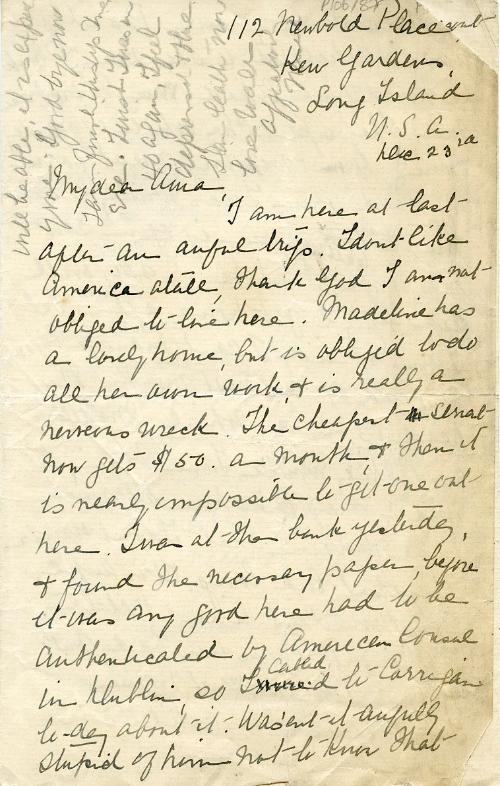 112 Newbold Place
Kew Gardens,
Long Island
U.S.A.
Dec 23rd
My dear Ama,
I am here at last
after an awful trip. I dont like
America atall, thank God I am not
obliged to live here. Madeline has
a lovely home, but is obliged to do
all her own work, & is really a
nerveous wreck. The cheapest servant
now gets $50. a month, & then it
is nearly impossible to get one out
here. I was at the bank yesterday,
& found the necessary paper, before
it was any good here had to be
authenticated by American Consul
in Dublin, so I cabled to Corrigan
to-day about it. Wasent it awfully
stupid of him not to know that